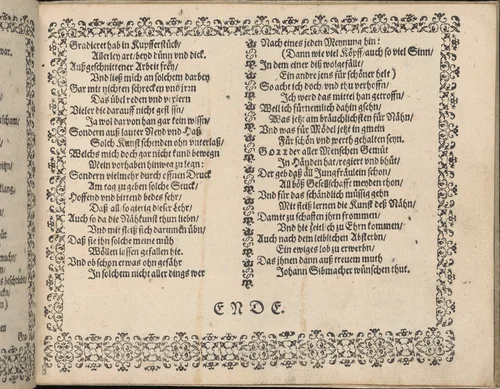 Gradieret hab in Kupfferstück/
Allerley art/ beyd dünn und dick.
Außgeschnittener Arbeit frey/
Und ließ mich an solchem darbey
Gar mit nichten schrecken und irrn
Das übel reden und
Vieler die darauff nicht geflissn/
Ja wol darvon han gar kein wissn/
Sondern auß lauter Neyd und Haß
Solch Kunst schenden ohn unterlaß/
Welchs mich doch gar nicht kund bewegn
Mein vorhaben hinweg zu legn:
Sondern vielmehr durch offnen Druck
Am tag zu geben solche Stuck/
Hoffend und bittend beides sehr/
Daß all so girig dieser Lehr/
Auch so da die Nähkunst thun liebn/
Und mit fleiß sich darinnen übn/
Daß sie ihn solche meine müh
Wöllen lossen gefallen hie.
Und ob schon etwas ohn gefähr
In solchem nicht aller dings wer
Nach eines jeden Meynung hin:
(Dann wie viel Köpff/ auch so viel Sinn/
In dem einer diß wolgefälle/
Ein andre jens für schöner helt)
So acht ich doch/ und thu verhoffen/
Ich werd das mittel han getroffn/
Weil ich fürnemlich dahin gsehn/
Was jetz am bräuchlichsten für Nähn/
Und was für Mödel jetzt in gmeln
Für schön und werth gehalten seyn.
GOTT der aller Menschen Gemüt
In Händen hat/ regiert und bhüt/
Der geb daß all Jungfräulein schon/
All böß Gesellschafft meyden thon/
Und für das schändlich müssig gehn
Mit fleiß lernen die Kunst deß Nähn/
Damit zu schaffen ihrn frommen/
Und hie zeitlich zu Ehrn kommen/
Auch nach dem leiblichen Absterbn/
Ein ewiges lob zu erwerbn/
Das ihnen dann auß treuem muth
Johann Sibmacher wünschen thut.
ENDE.